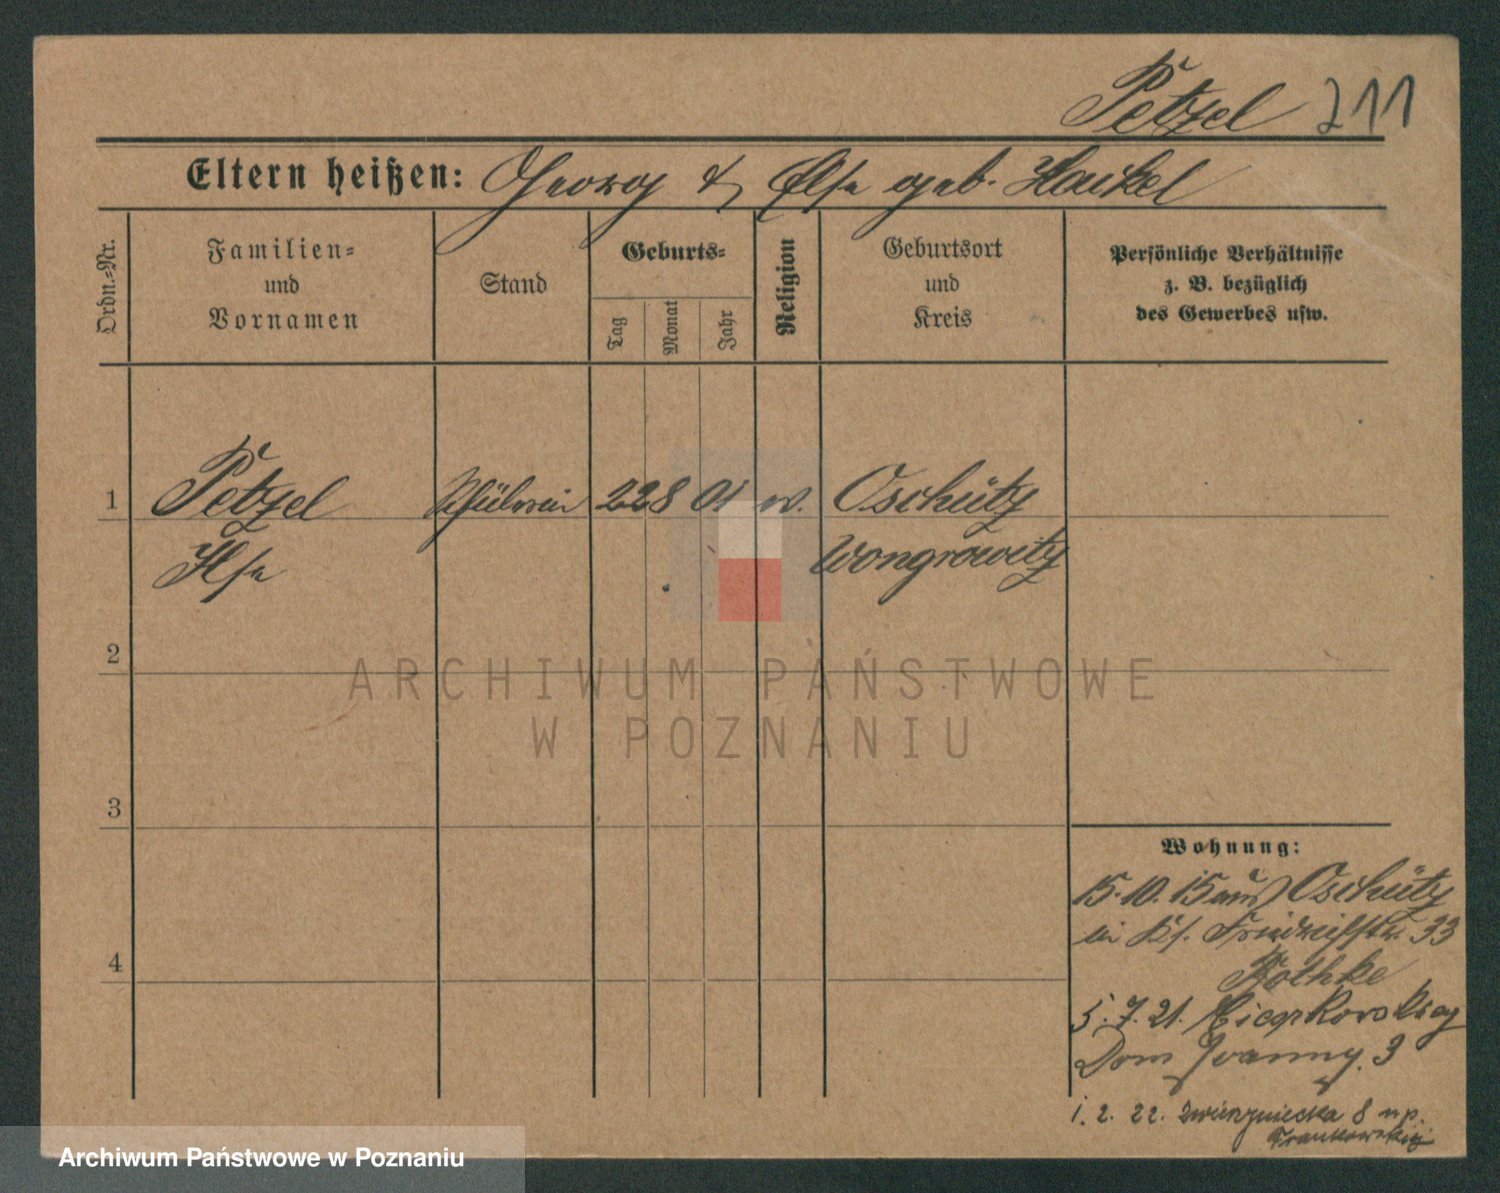 Petzel 211
Eltern heißen: Georg & Else geb. Hackel
Ordn.-Nr.
Familien-
und
Vornamen
Stand
Geburts-
Tag
Monat
Jahr
Religion
Geburtsort
und
Kreis
Persönliche Verhältnisse
z. B. bezüglich
des Gewerbes usw.
1 Petzel Schülerin 22 8 01 Oschütz
Ilse Wongrowitz
2
3
4
Wohnung:
15.10.15 aus Oschütz
Friedrichstr. 33
Rothke
5.7.21.
Dom 3
1. 2. 22. Zwierzyniecka 8 u p.
Frankowskiej
ARCHIWUM PAŃSTWOWE
W POZNANIU
Archiwum Państwowe w Poznaniu